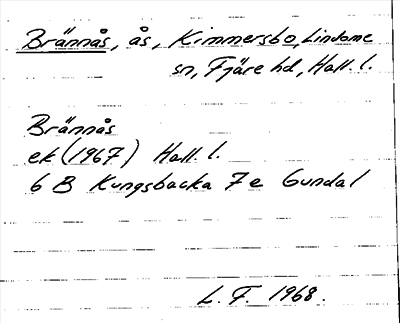 Brännås, ås, Kimmersbo, Lindome
sn, Fjäre hd, Hall. l.
Brännås
ek (1967) Hall. l.
6 B Kungsbacka 7 e Gundal
L. F. 1968.